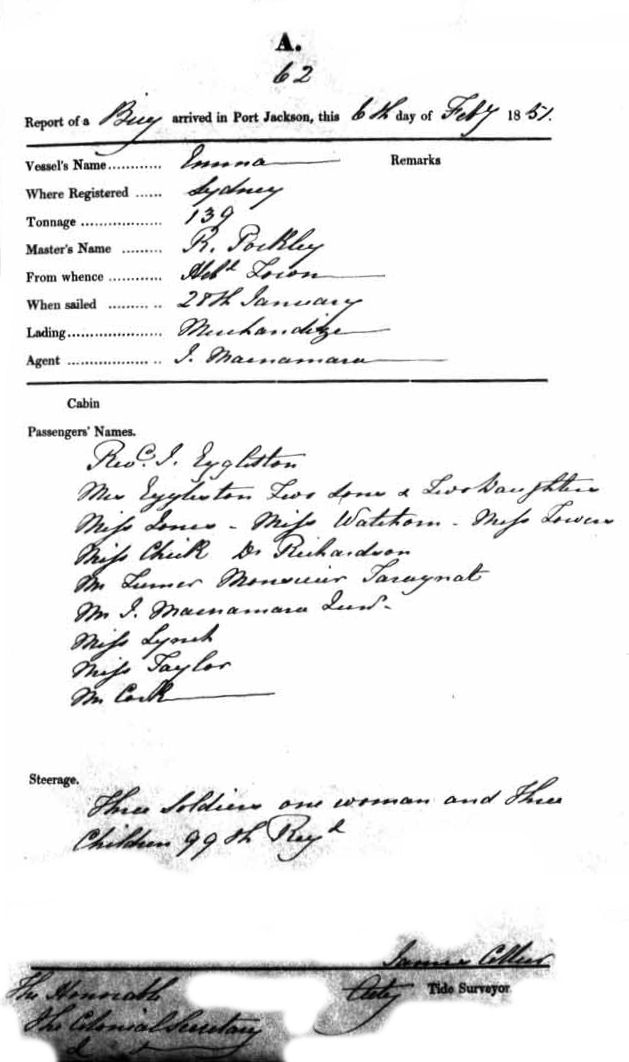 A.
62
Report of a Brig arrived in Port Jackson, this 6th day of Feby 1851.
Vessel's Name............ Emma Remarks
Where Registered ...... Sydney
Tonnage .................. 139
Master's Name ......... R. Pockley
From whence ............ Hobt Town
When sailed ......... .. 28th January
Lading..................... Merchandize
Agent .................. .. J. Macnamara
Cabin
Passengers' Names.
Revd. J. Eggleston
Mrs Eggleston Two Sons & Two Daughters
Miss Jones - Miss Watchorn - Miss Towers
Miss Chick Dr Richardson
Mr Turner Monsieur Taraynat
Mr J. Macnamara Junr.
Miss Lynch
Miss Taylor
Mr Cork
Steerage.
Three Soldiers one woman and Three
Children 99th Regt
James Collier
Actg Tide Surveyor
The Honorable
The Colonial Secretary